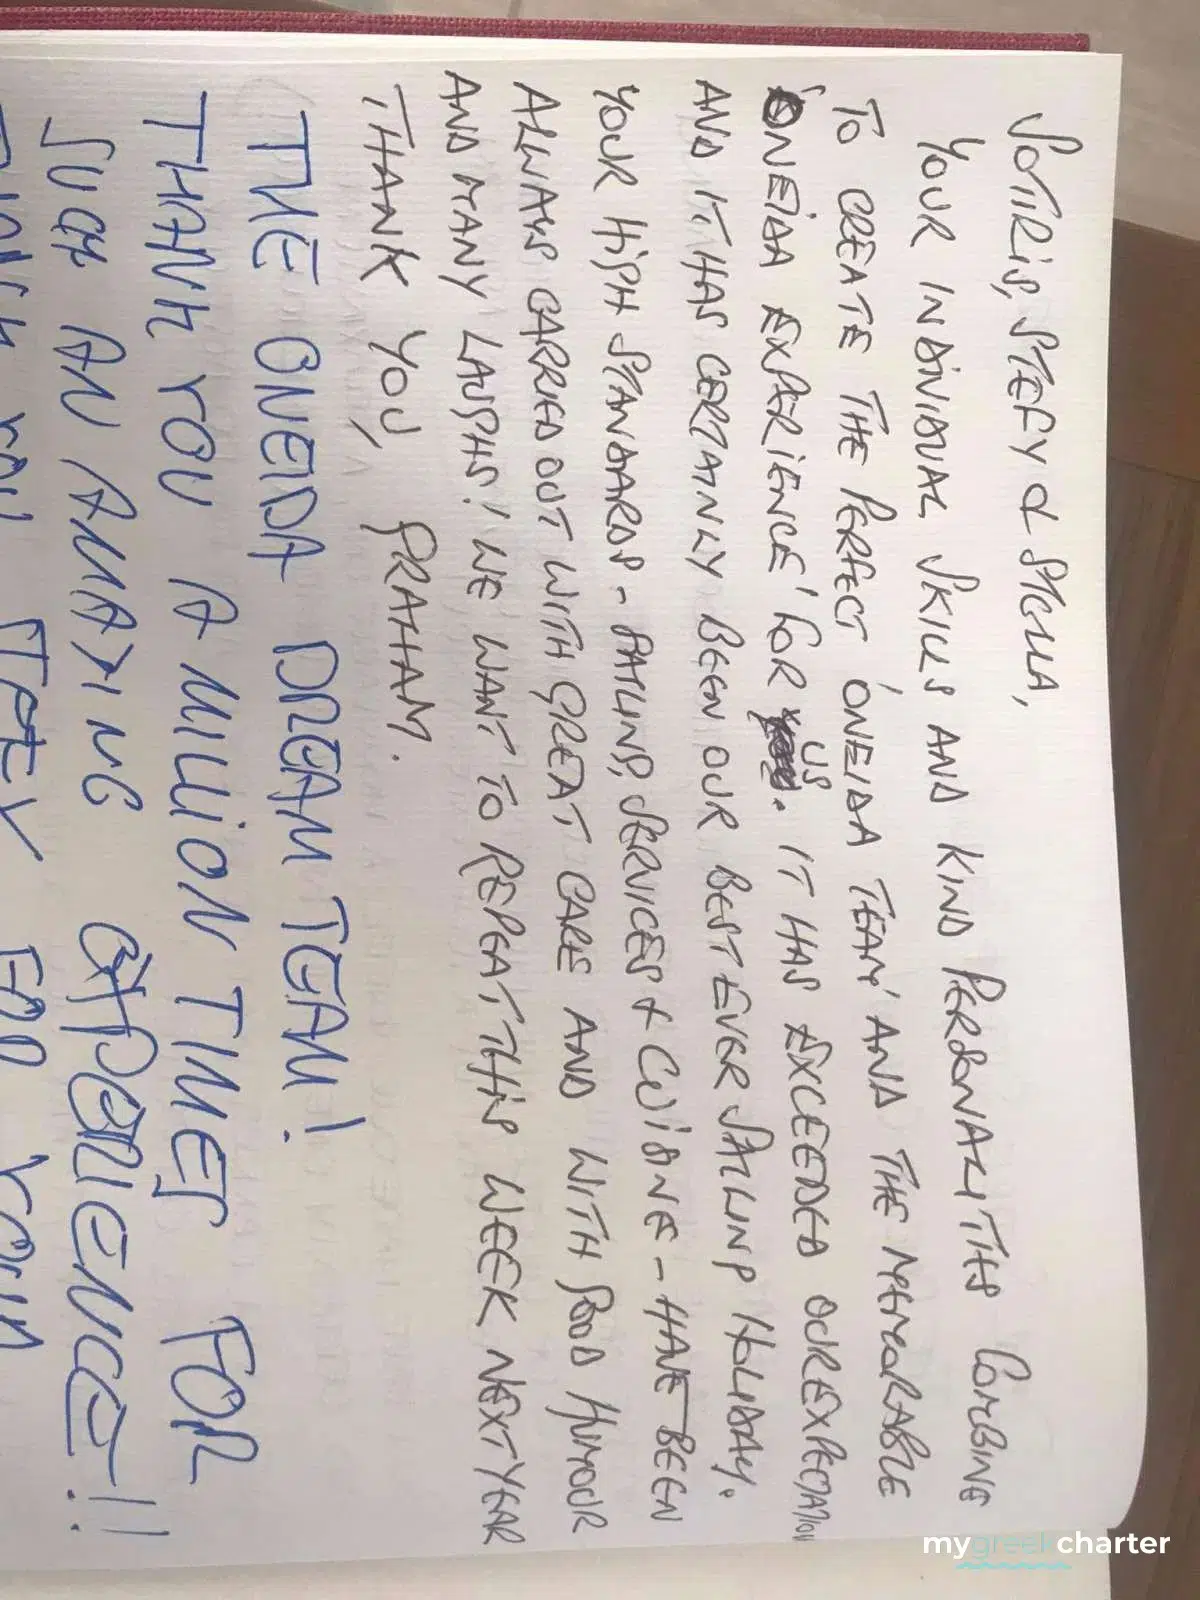 SOTIRIS, STEFY & STELLA,
YOUR INDIVIDUAL SKILLS AND KIND PERSONALITIES COMBINE
TO CREATE THE PERFECT 'ONEIDA TEAM' AND THE MEMORABLE
'ONEIDA EXPERIENCE' FOR US. IT HAS EXCEEDED OUR EXPECTATION
AND IT HAS CERTAINLY BEEN OUR BEST EVER SAILING HOLIDAY.
YOUR HIGH STANDARDS - SAILING, SERVICES & CUISINE - HAVE BEEN
ALWAYS CARRIED OUT WITH GREAT CARE AND WITH GOOD HUMOUR
AND MANY LAUGHS! WE WANT TO REPEAT THIS WEEK NEXT YEAR
THANK YOU, GRAHAM.
THE ONEIDA DREAM TEAM!
THANK YOU A MILLION TIMES FOR
SUCH AN AMAZING EXPERIENCE!!
THANK YOU STEFY FOR YOUR
mygreekcharter